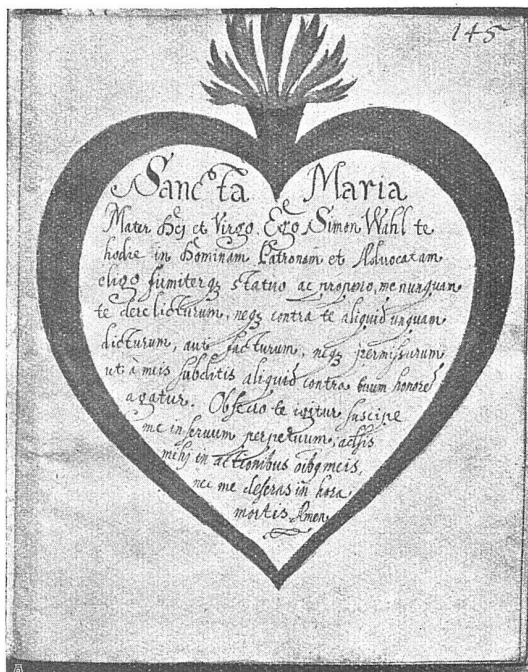 145
Sancta Maria
Mater Dej et Virgo. Ego Simon Wahl te
hodie in Dominam Patronam et Advocatam
eligo firmiterqȝ statuo ac propono, me nunquam
te derelicturum, neqȝ contra te aliquid unquam
dicturum, aut facturum, neqȝ permissurum
ut à meis subditis aliquid contra tuum honorē
agatur. Obsecro te igitur suscipe
me in servum perpetuum, adsis
mihj in actionibus oībȝ meis,
nec me deseras in hora
mortis Amen